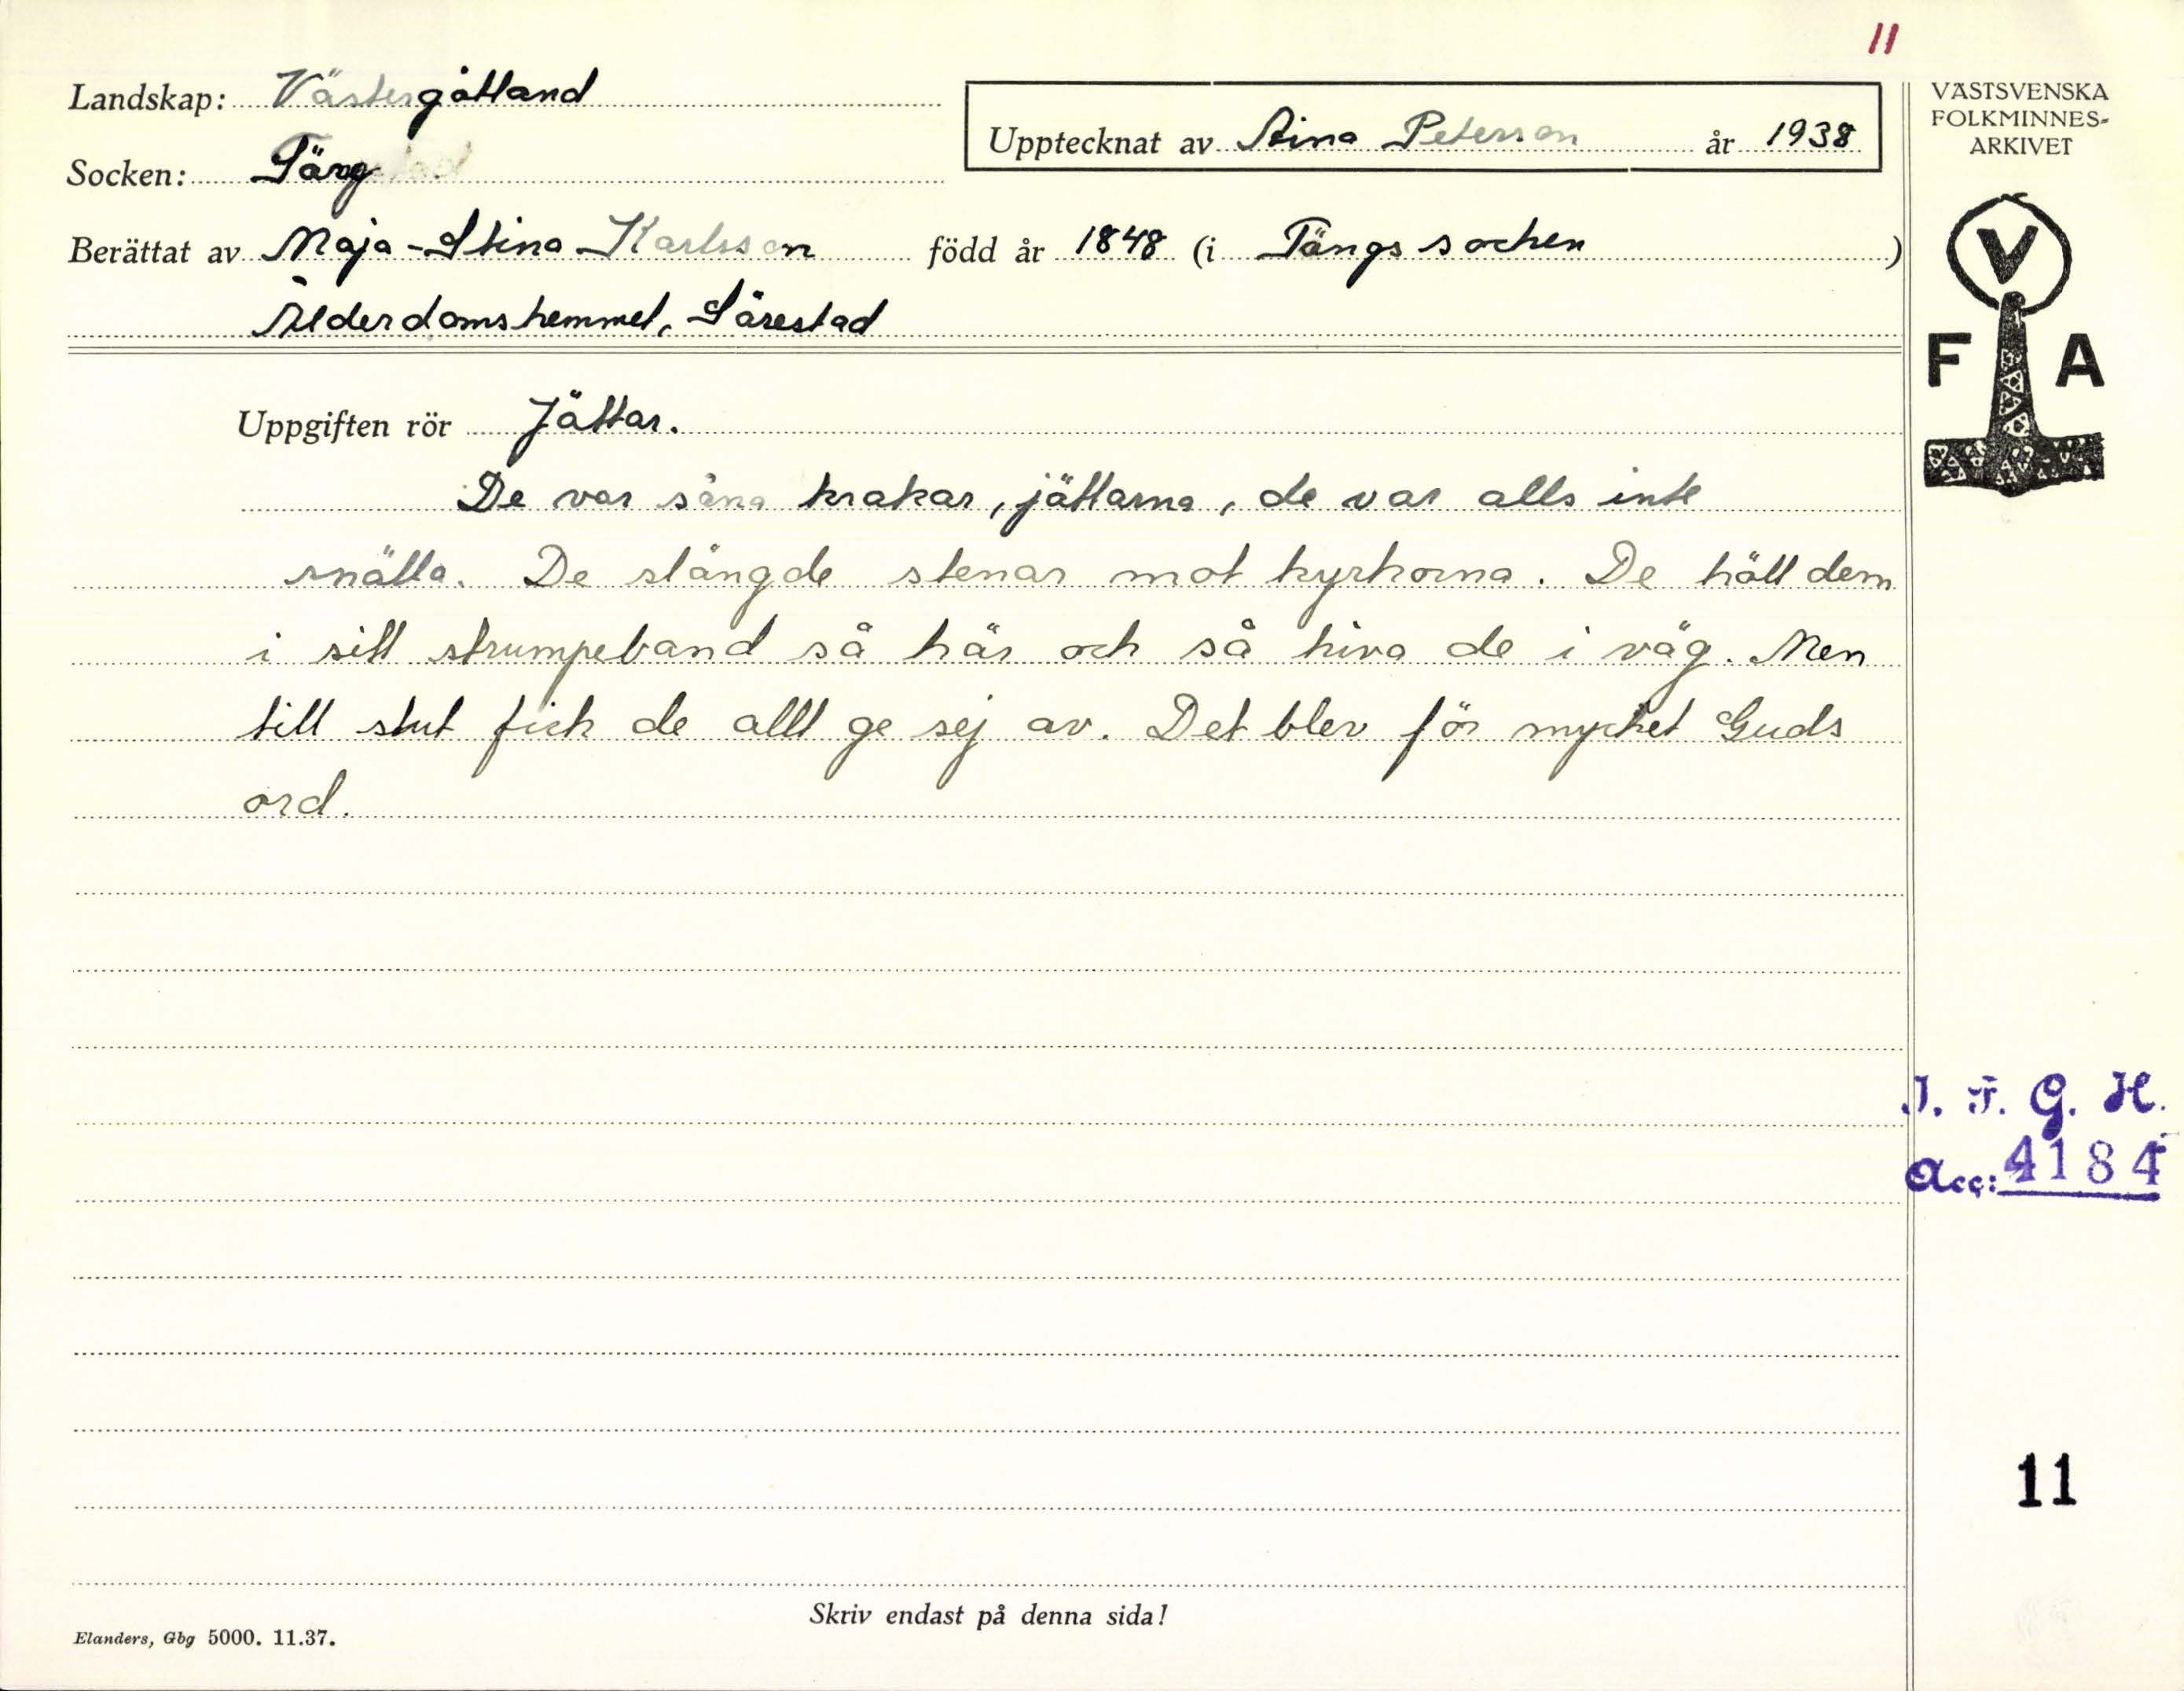 11
Landskap: Västergötland
Upptecknat av Aina Peterson år 1938
VÄSTSVENSKA
FOLKMINNES-
ARKIVET
Socken: Täng
Berättat av Maja-Stina Karlsson född år 1848 (i Tängs socken)
Ålderdomshemmet, Särestad
V
F A
Uppgiften rör Jättar.
De var såna krakar, jättarna, de var alls inte
snälla. De slängde stenar mot kyrkorna. De höll dem
i sitt strumpeband så här och så hiva de i väg. Men
till slut fick de allt ge sej av. Det blev för mycket Guds
ord.
I. F. G. H.
Acc: 4184
11
Skriv endast på denna sida!
Elanders, Gbg 5000. 11.37.